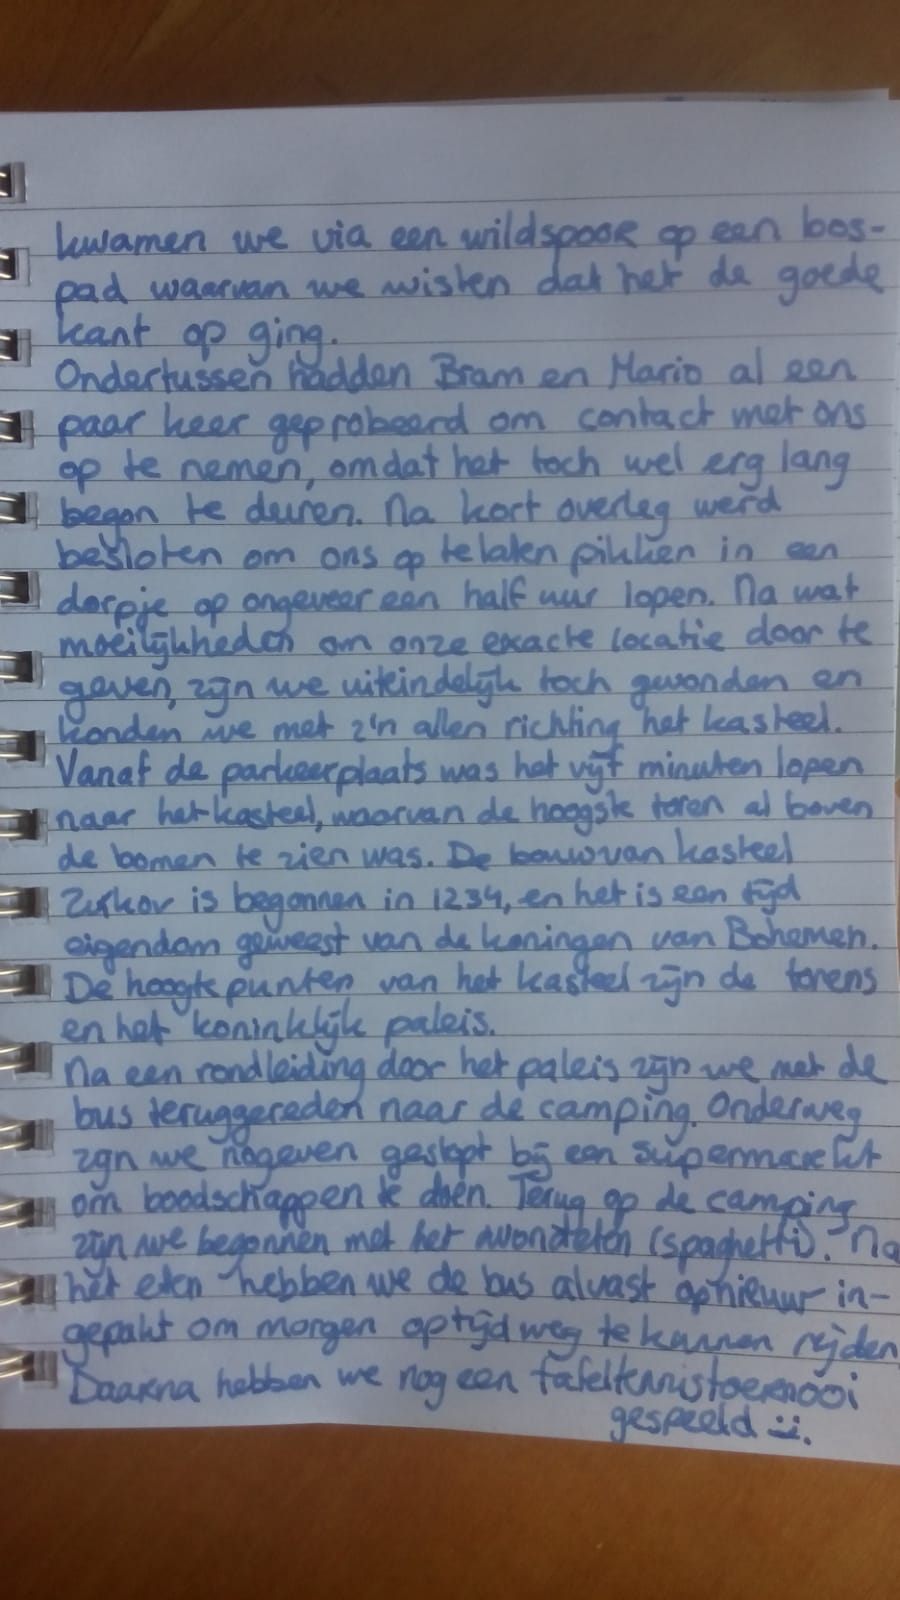 kwamen we via een wildspoor op een bos-
pad waarvan we wisten dat het de goede
kant op ging.
Ondertussen hadden Bram en Mario al een
paar keer geprobeerd om contact met ons
op te nemen, omdat het toch wel erg lang
begon te duren. Na kort overleg werd
besloten om ons op te laten pikken in een
dorpje op ongeveer een half uur lopen. Na wat
moeilijkheden om onze exacte locatie door te
geven, zijn we uiteindelijk toch gevonden en
konden we met z'n allen richting het kasteel.
Vanaf de parkeerplaats was het vijf minuten lopen
naar het kasteel, waarvan de hoogste toren al boven
de bomen te zien was. De bouw van kasteel
Zvikov is begonnen in 1234, en het is een tijd
eigendom geweest van de koningen van Bohemen.
De hoogtepunten van het kasteel zijn de torens
en het koninklijk paleis.
Na een rondleiding door het paleis zijn we met de
bus teruggereden naar de camping. Onderweg
zijn we nog even gestopt bij een supermarkt
om boodschappen te doen. Terug op de camping
zijn we begonnen met het avondeten (spaghetti). Na
het eten hebben we de bus alvast opnieuw in-
gepakt om morgen op tijd weg te kunnen rijden.
Daarna hebben we nog een tafeltennistoernooi
gespeeld :).